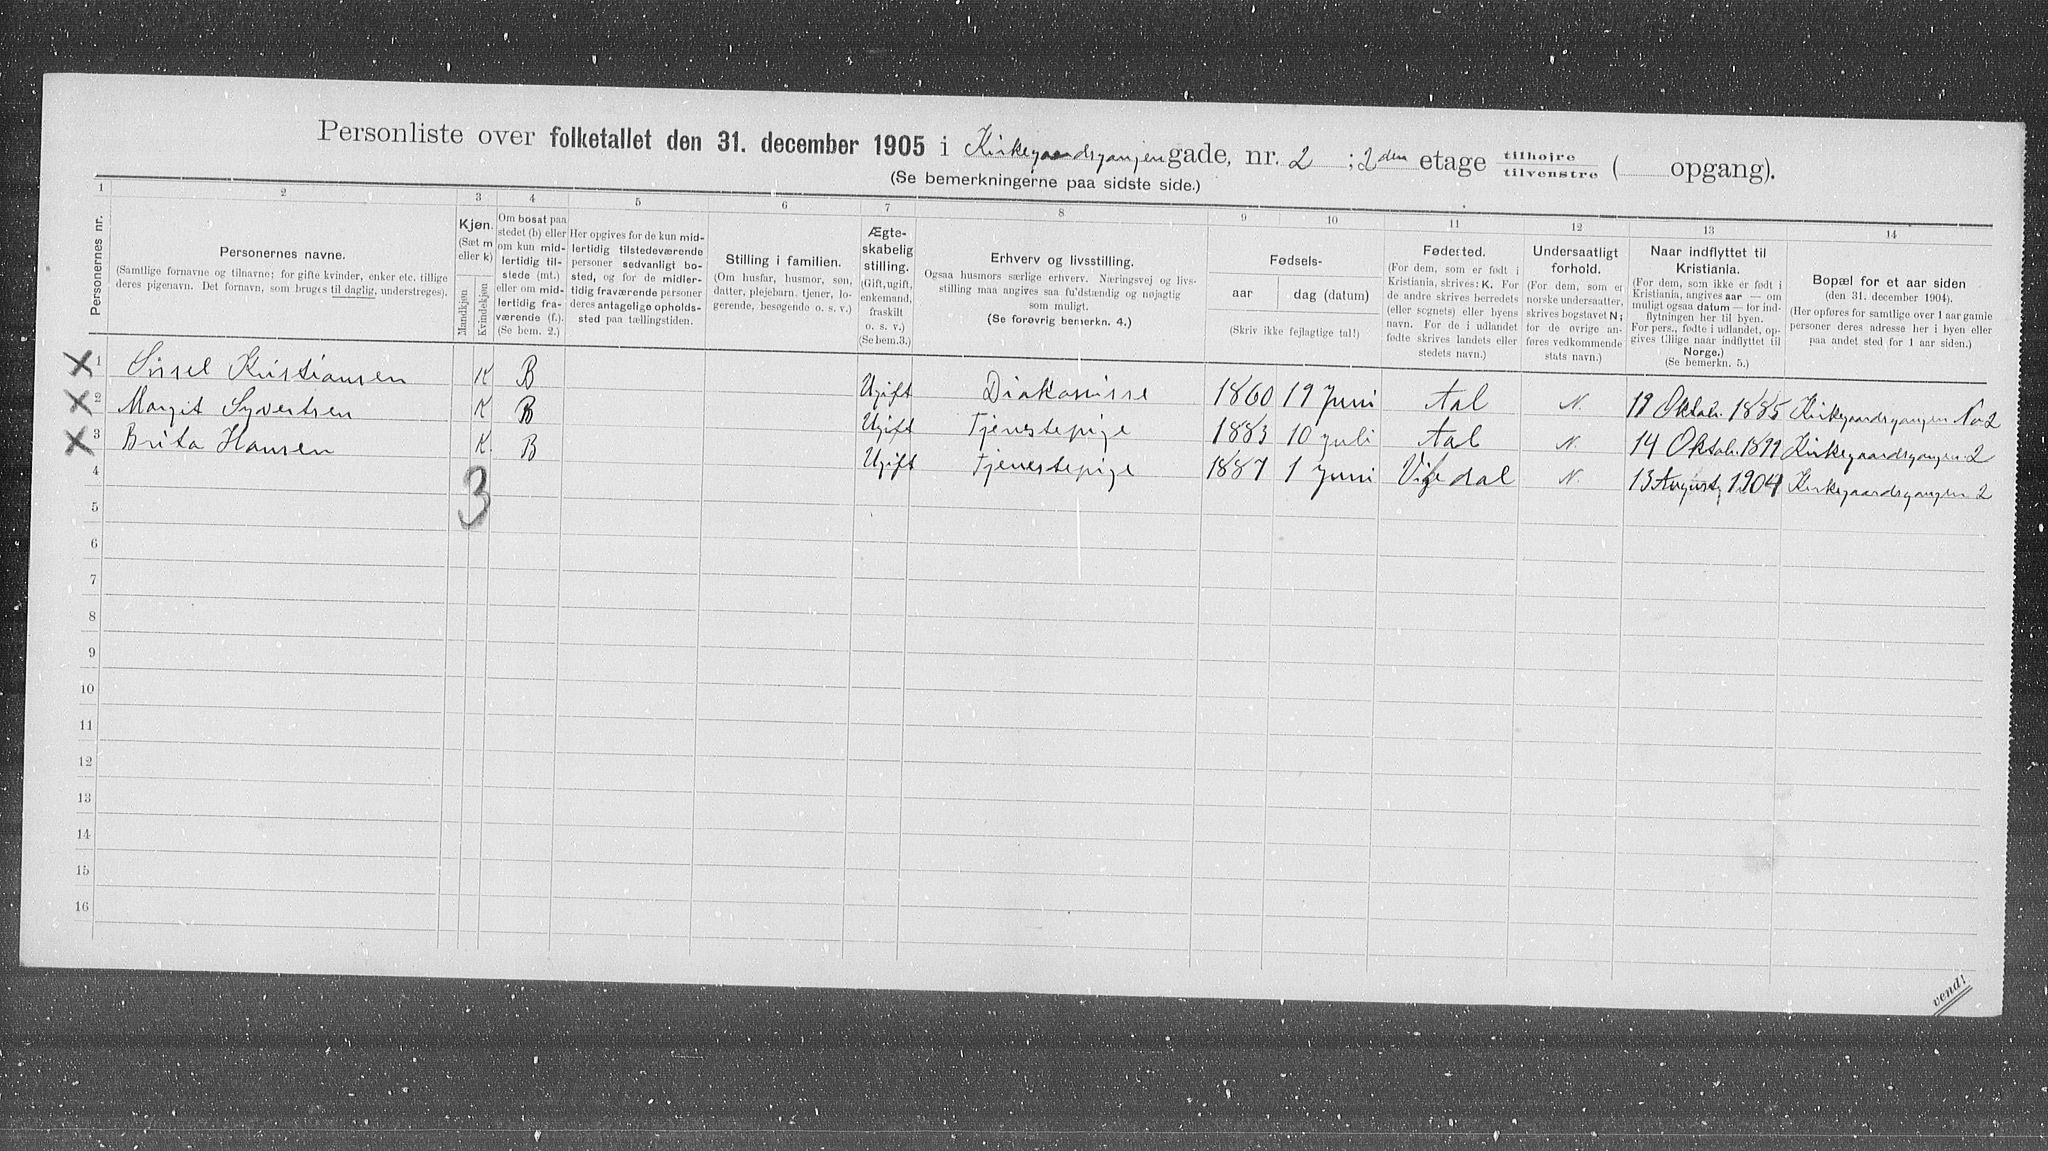 Personliste over folketallet den 31. december 1905 i Kirkegaardsgangen gade, nr. 2 ; 2den etage tilhøjre tilvenstre ( opgang).
(Se bemerkningerne paa sidste side.)
1 2 3 4 5 6 7 8 9 10 11 12 13 14
Personernes nr.
Personernes navne.
(Samtlige fornavne og tilnavne; for gifte kvinder, enker etc. tillige
deres pigenavn. Det fornavn, som bruges til daglig, understreges).
Kjøn.
(Sæt m
eller k)
Mandkjøn
Kvindekjøn
Om bosat paa
stedet (b) eller
om kun mid-
lertidig til-
stede (mt.)
eller om mid-
lertidig fra-
værende (f.).
(Se bem. 2.)
Her opgives for de kun mid-
lertidig tilstedeværende
personer sedvanligt bo-
sted, og for de midler-
tidig fraværende personer
deres antagelige opholds-
sted paa tællingstiden.
Stilling i familien.
(Om husfar, husmor, søn,
datter, plejebarn, tjener, lo-
gerende, besøgende o. s. v.)
Ægte-
skabelig
stilling.
(Gift, ugift,
enkemand,
fraskilt
o. s. v.)
(Se bem.3.)
Erhverv og livsstilling.
Ogsaa husmors særlige erhverv. Næringsvej og livs-
stilling maa angives saa fuldstændig og nøjagtig
som muligt.
(Se forøvrig bemerkn. 4.)
Fødsels-
aar
dag (datum)
(Skriv ikke fejlagtige tal!)
Fødested.
(For dem, som er født i
Kristiania, skrives: K. For
de andre skrives herredets
(eller sognets) eller byens
navn. For de i udlandet
fødte skrives landets eller
stedets navn.)
Undersaatligt
forhold.
(For dem, som er
norske undersaatter,
skrives bogstavet N;
for de øvrige an-
føres vedkommende
stats navn.)
Naar indflyttet til
Kristiania.
(For dem, som ikke er født i
Kristiania, angives aar — om
muligt ogsaa datum — for ind-
flytningen her til byen.
For pers., fødte i udlandet, op-
gives tillige naar indflyttet til
Norge.)
(Se bemerkn. 5.)
Bopæl for et aar siden
(den 31. december 1904).
(Her opføres for samtlige over 1 aar gamle
personer deres adresse her i byen eller
paa andet sted for 1 aar siden.)
X 1 Sissel Kristiansen K B Ugift Diakonisse 1860 19 Juni Aal N. 19 Oktob. 1885 Kirkegaardsgangen No 2
X 2 Margit Syvertsen K B Ugift Tjenestepige 1883 10 juli Aal N. 14 Oktob. 1899 Kirkegaardsgangen 2
X 3 Brita Hansen K. B Ugift Tjenestepige 1887 1 Juni Vigedal N. 13 August 1904 Kirkegaardsgangen 2
4
3
5
6
7
8
9
10
11
12
13
14
15
16
vend!